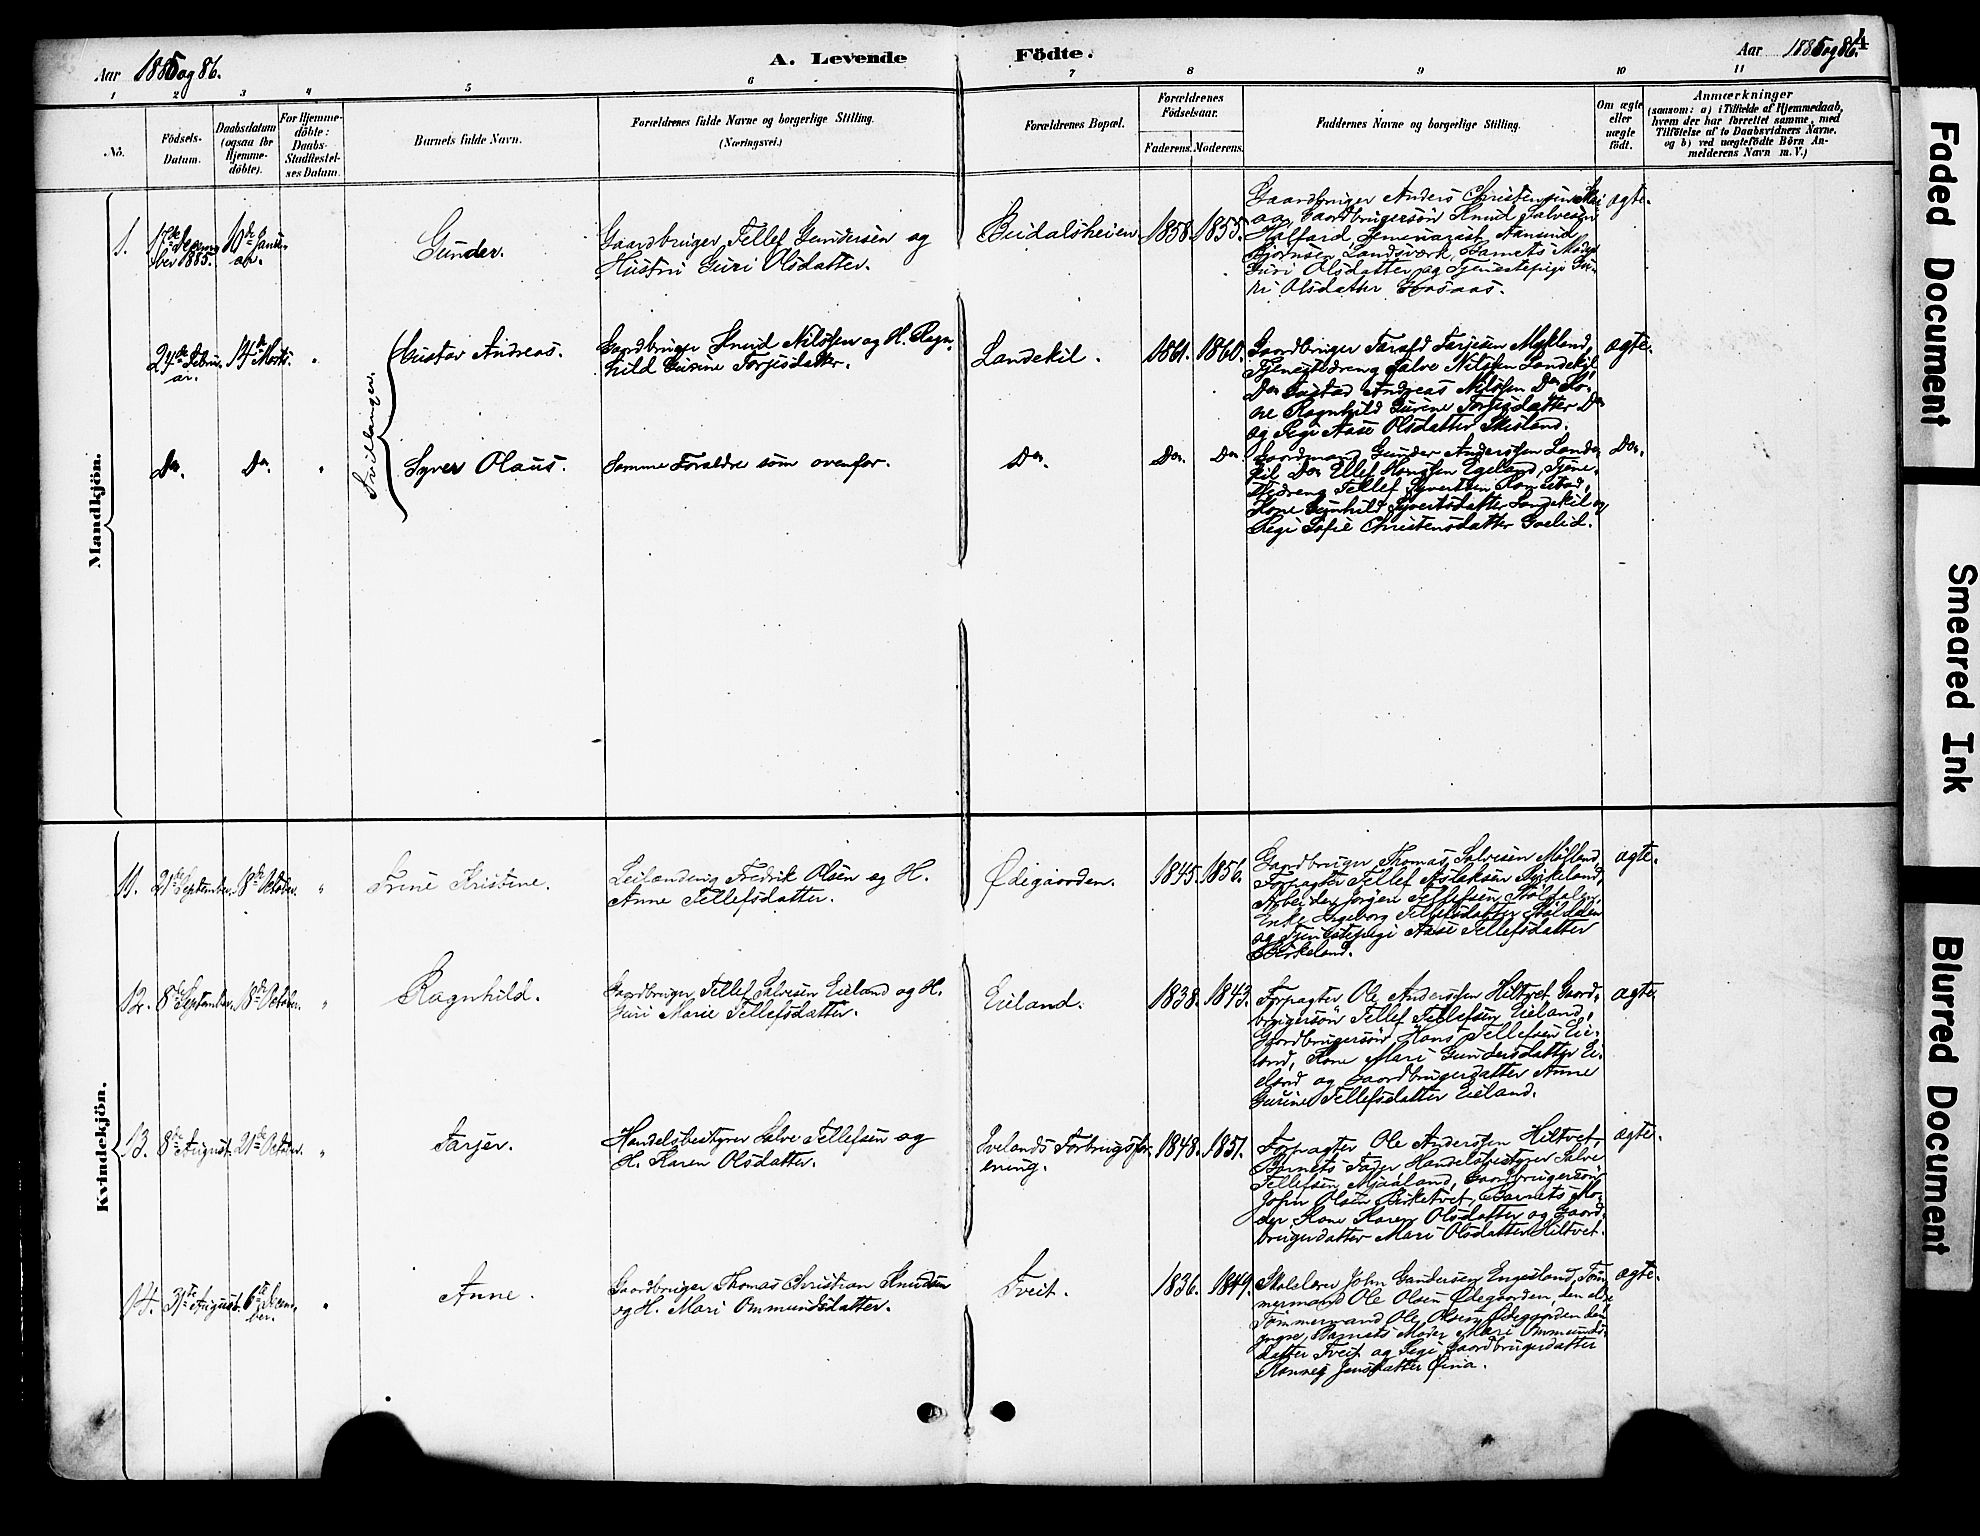 Aar 1885 og 86.
A. Levende Födte.
Aar 1885 og 86.
4
1 2 3 4 5 6 7 8 9 10 11
No.
Födsels-
Datum.
Daabsdatum
(ogsaa for
Hjemme-
döbte).
For Hjemme-
döbte:
Daabs-
Stadfæstel-
ses Datum.
Barnets fulde Navn.
Forældrenes fulde Navne og borgerlige Stilling.
(Næringsvei.)
Forældrenes Bopæl.
Forældrenes
Födselsaar.
Faderens. Moderens.
Faddernes Navne og borgerlige Stilling.
Om ægte
eller
uægte
födt.
Anmærkninger
(saasom: a) i Tilfælde af Hjemmedaab,
hvem der har forrettet samme, med
Tilföielse af to Daabsvidners Navne.
og b) ved uægtefödte Börn An-
melderens Navn m. V.)
Mandkjön.
1.
17de Decem-
ber 1885.
10de Janu-
ar.
Gunder.
Gaardbruger Tellef Gundersen og
Hustru Guri Olsdatter.
1858. 1855.
Gaardbruger Anders Christensen
og Gaardbrugersön Knud Salvesen
Bjørnsen Landsværk, Barnets Moder
Guri Olsdatter og Tjenestepige Gu-
ri Olsdatter
ægte.
24de Febru-
ar.
14de Marts.
"
Tvillinger.
Gustav Andreas.
Gaardbruger Knud Nilsen og H. Ragn-
hild Gurine Torjesdatter.
Landekil.
1861. 1860.
Gaardbruger Tarald Tarjesen Mykland,
Tjenestedreng Salve Nilsen Landekil,
Do Gustav Andreas Nilsen Do Ko-
ne Ragnhild Gurine Torjesdatter Do
og Pige Aase Olsdatter Skisland.
ægte.
Do.
Do.
"
Syver Olaus.
Samme Forældre som ovenfor.
Do.
Do. Do.
Gaardmand Gunder Anderssen Lande-
kil Do Ellef Hanssen Egeland, Tjene-
stedreng Tellef Syvertsen
Kone Gunhild Syvertsdatter Landekil og
Pige Sofie Christensdatter
Do.
Kvindekjön.
11.
21de September.
18de October.
"
Trine Kristine.
Leilænding Fredrik Olsen og H.
Anne Tellefsdatter.
Ødegaarden.
1845. 1856.
Gaardbruger Thomas Salvesen Møllland,
Forpagter Tellef Aslaksen Birkeland,
Arbeider Jørgen Tellefsen
Enke Ingeborg Tellefsdatter
og Tjenestepige Aase Tellefsdatter
Birkeland.
ægte.
12.
8de September.
18de October.
"
Ragnhild.
Gaardbruger Tellef Salvesen Eieland og H.
Guri Marie Tellefsdatter.
Eieland.
1838. 1843.
Forpagter Ole Anderssen Hiltvet Gaard-
brugersön Tellef Tellefsen Eieland,
Gaardbrugersön Hans Tellefsen Eie-
land, Kone Mari Gundersdatter Ei-
eland og Gaardbrugerdatter Anne
Gurine Tellefsdatter Eieland.
ægte
13.
8de August.
21de October.
"
Tarjer.
Handelsbestyrer Salve Tellefsen og
H. Karen Olsdatter.
Ivelands Forbrugsfor-
ening.
1848. 1851.
Forpagter Ole Anderssen Hiltvet,
Barnets Fader Handelsbestyrer Salve
Tellefsen Mjaaland, Gaardbrugersön
John Olsen Birketvet, Barnets Mo-
der Kone Karen Olsdatter og Gaard-
brugerdatter Mari Olsdatter Hiltvet.
ægte.
14.
31te August.
6te Decem-
ber.
"
Anne.
Gaardbruger Thomas Christian Knudsen
og H. Mari Ommundsdatter.
Tveit.
1836. 1849.
Skolelærer John Gundersen Engesland, Tøm-
mermand Ole Olsen Ødegaarden, den eldre
Tømmermand Ole Olsen Ødegaarden den
yngre, Barnets Moder Mari Ommunds-
datter Tveit og Pige Gaardbrugerdatter
Ranneg Jensdatter
ægte.
Faded Document
Smeared Ink
Blurred Document